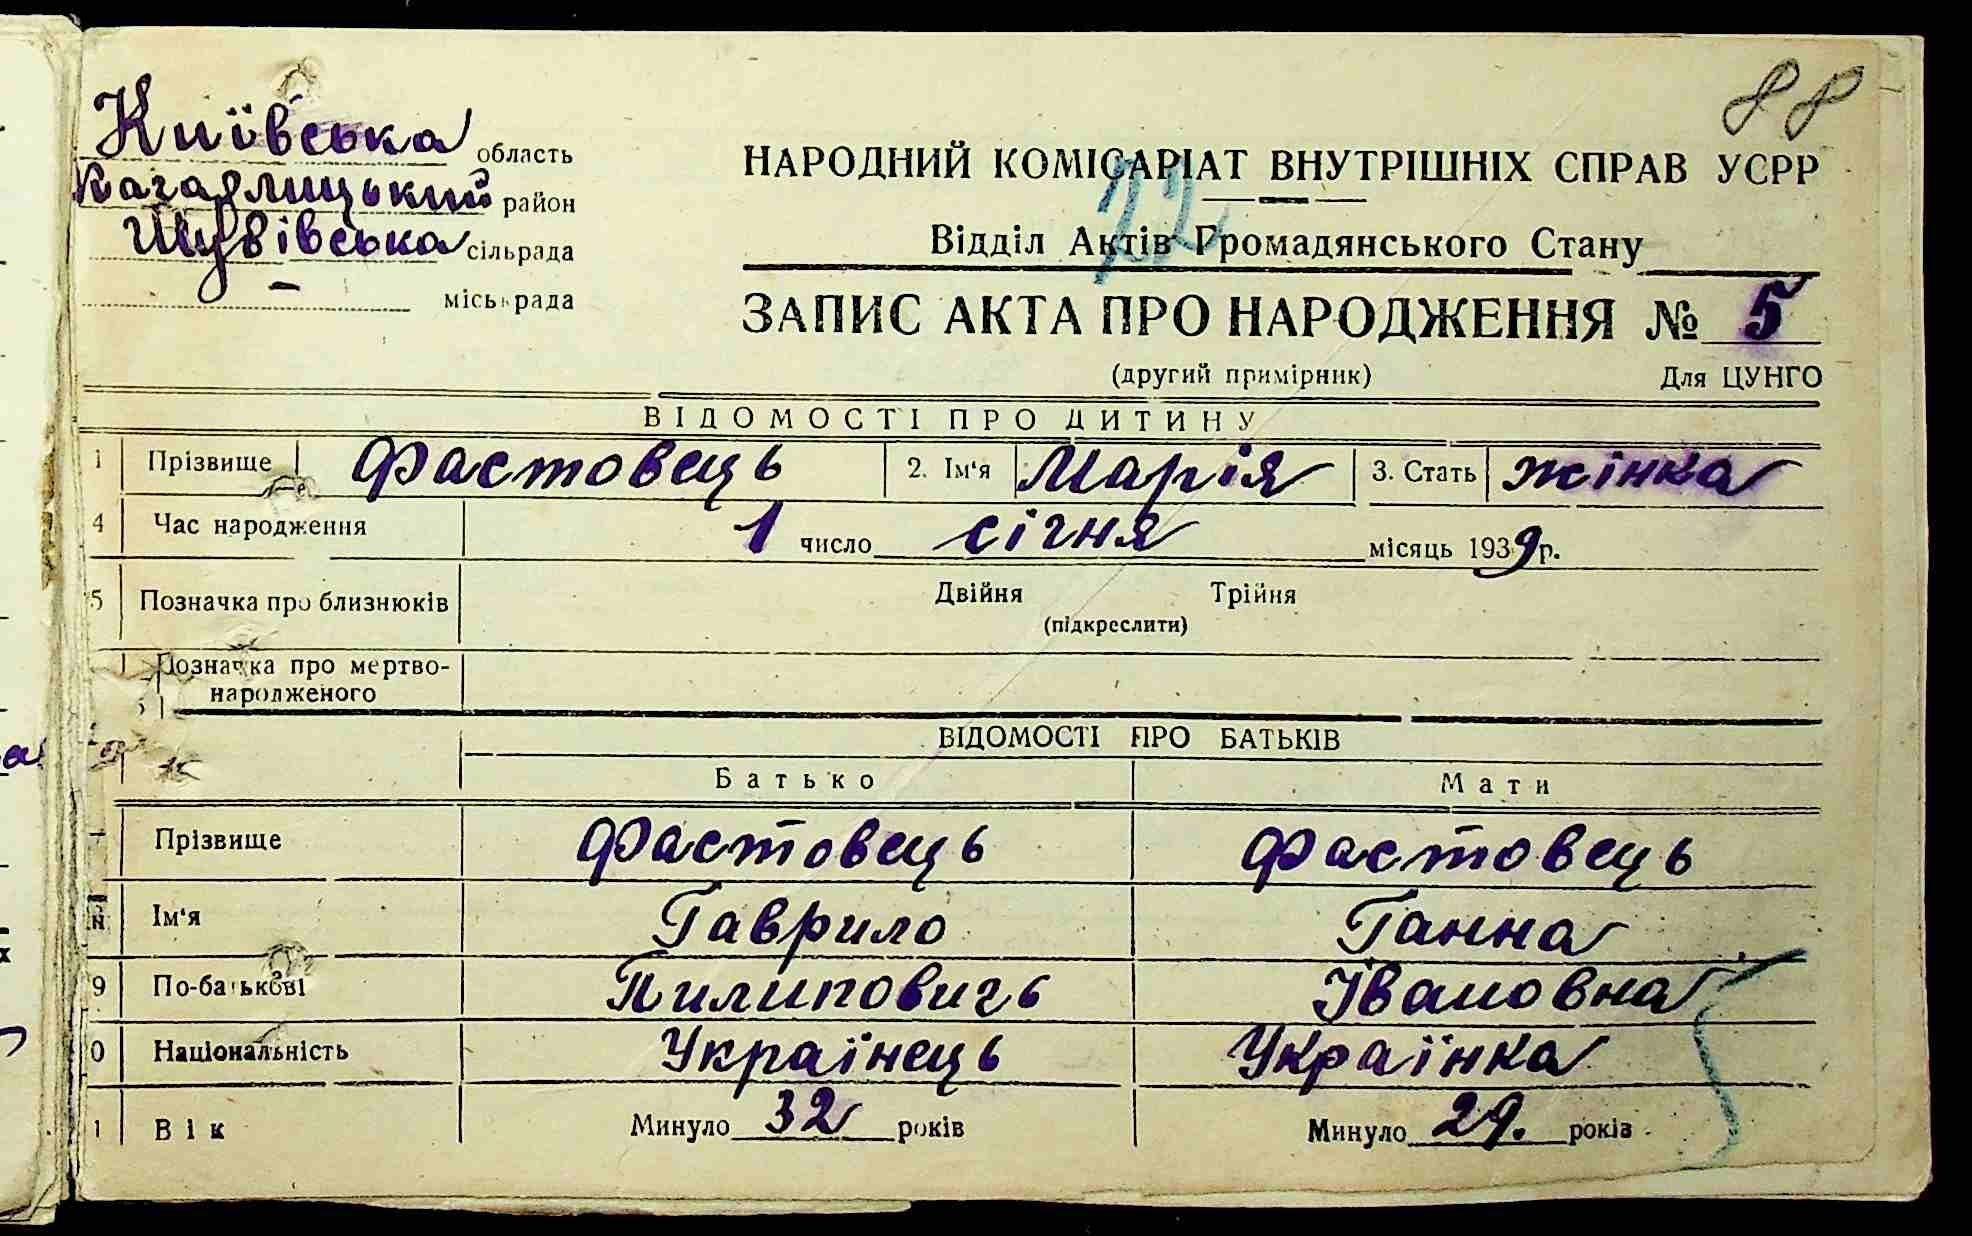 88
Київська область
Кагарлицький район
сільрада
– міськрада
НАРОДНИЙ КОМІСАРІАТ ВНУТРІШНІХ СПРАВ УСРР
22
Відділ Актів Громадянського Стану
ЗАПИС АКТА ПРО НАРОДЖЕННЯ № 5
(другий примірник) Для ЦУНГО
ВІДОМОСТІ ПРО ДИТИНУ
1 Прізвище Фастовець 2. Ім'я Марія 3. Стать жінка
4 Час народження 1 число січня місяць 1939 р.
5 Позначка про близнюків Двійня Трійня
(підкреслити)
Позначка про мертво-
народженого
ВІДОМОСТІ ПРО БАТЬКІВ
Батько Мати
7 Прізвище Фастовець Фастовець
Ім'я Гаврило Ганна
9 По-батькові Пилипович Івановна
0 Національність Українець Українка
1 Вік Минуло 32 років Минуло 29. років